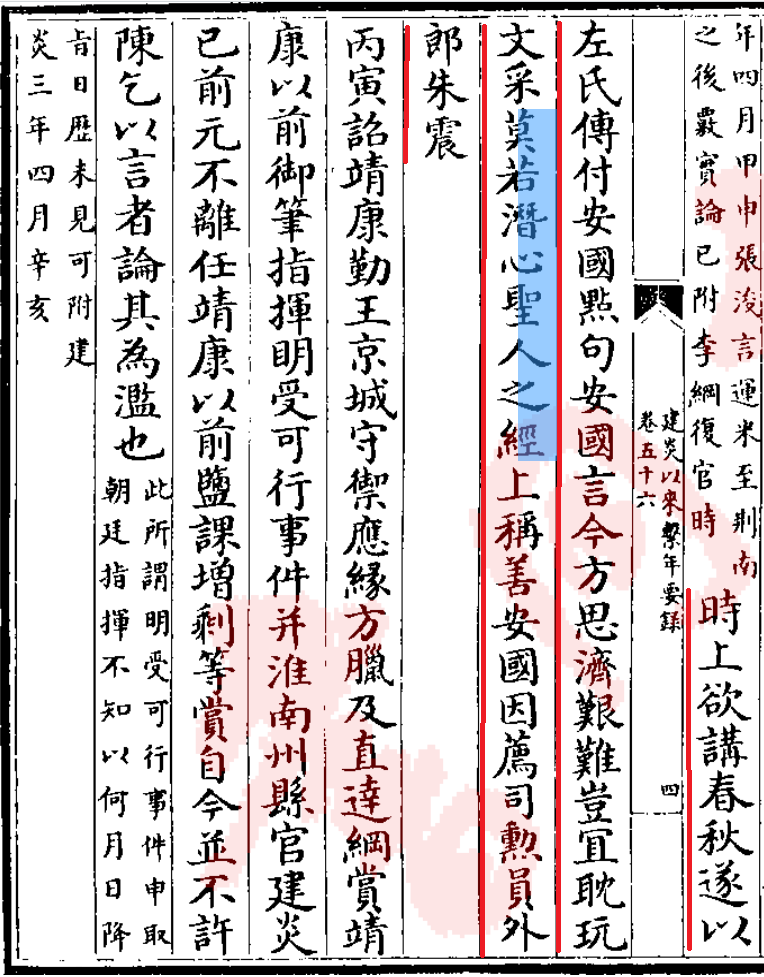 年四月甲申張浚言運米至荆南
之後覈實論已附李綱復官時
時上欲講春秋遂以
建炎以來繫年要錄
卷五十六
四
左氏傳付安國點句安國言今方思濟艱難豈宜耽玩
文采莫若潛心聖人之經上稱善安國因薦司勲員外
郎朱震
丙寅詔靖康勤王京城守禦應緣方臘及直達綱賞靖
康以前御筆指揮明受可行事件并淮南州縣官建炎
已前元不離任靖康以前鹽課增剩等賞自今並不許
陳乞以言者論其為濫也
此所謂明受可行事件申取
朝廷指揮不知以何月日降
旨日歴未見可附建
炎三年四月辛亥